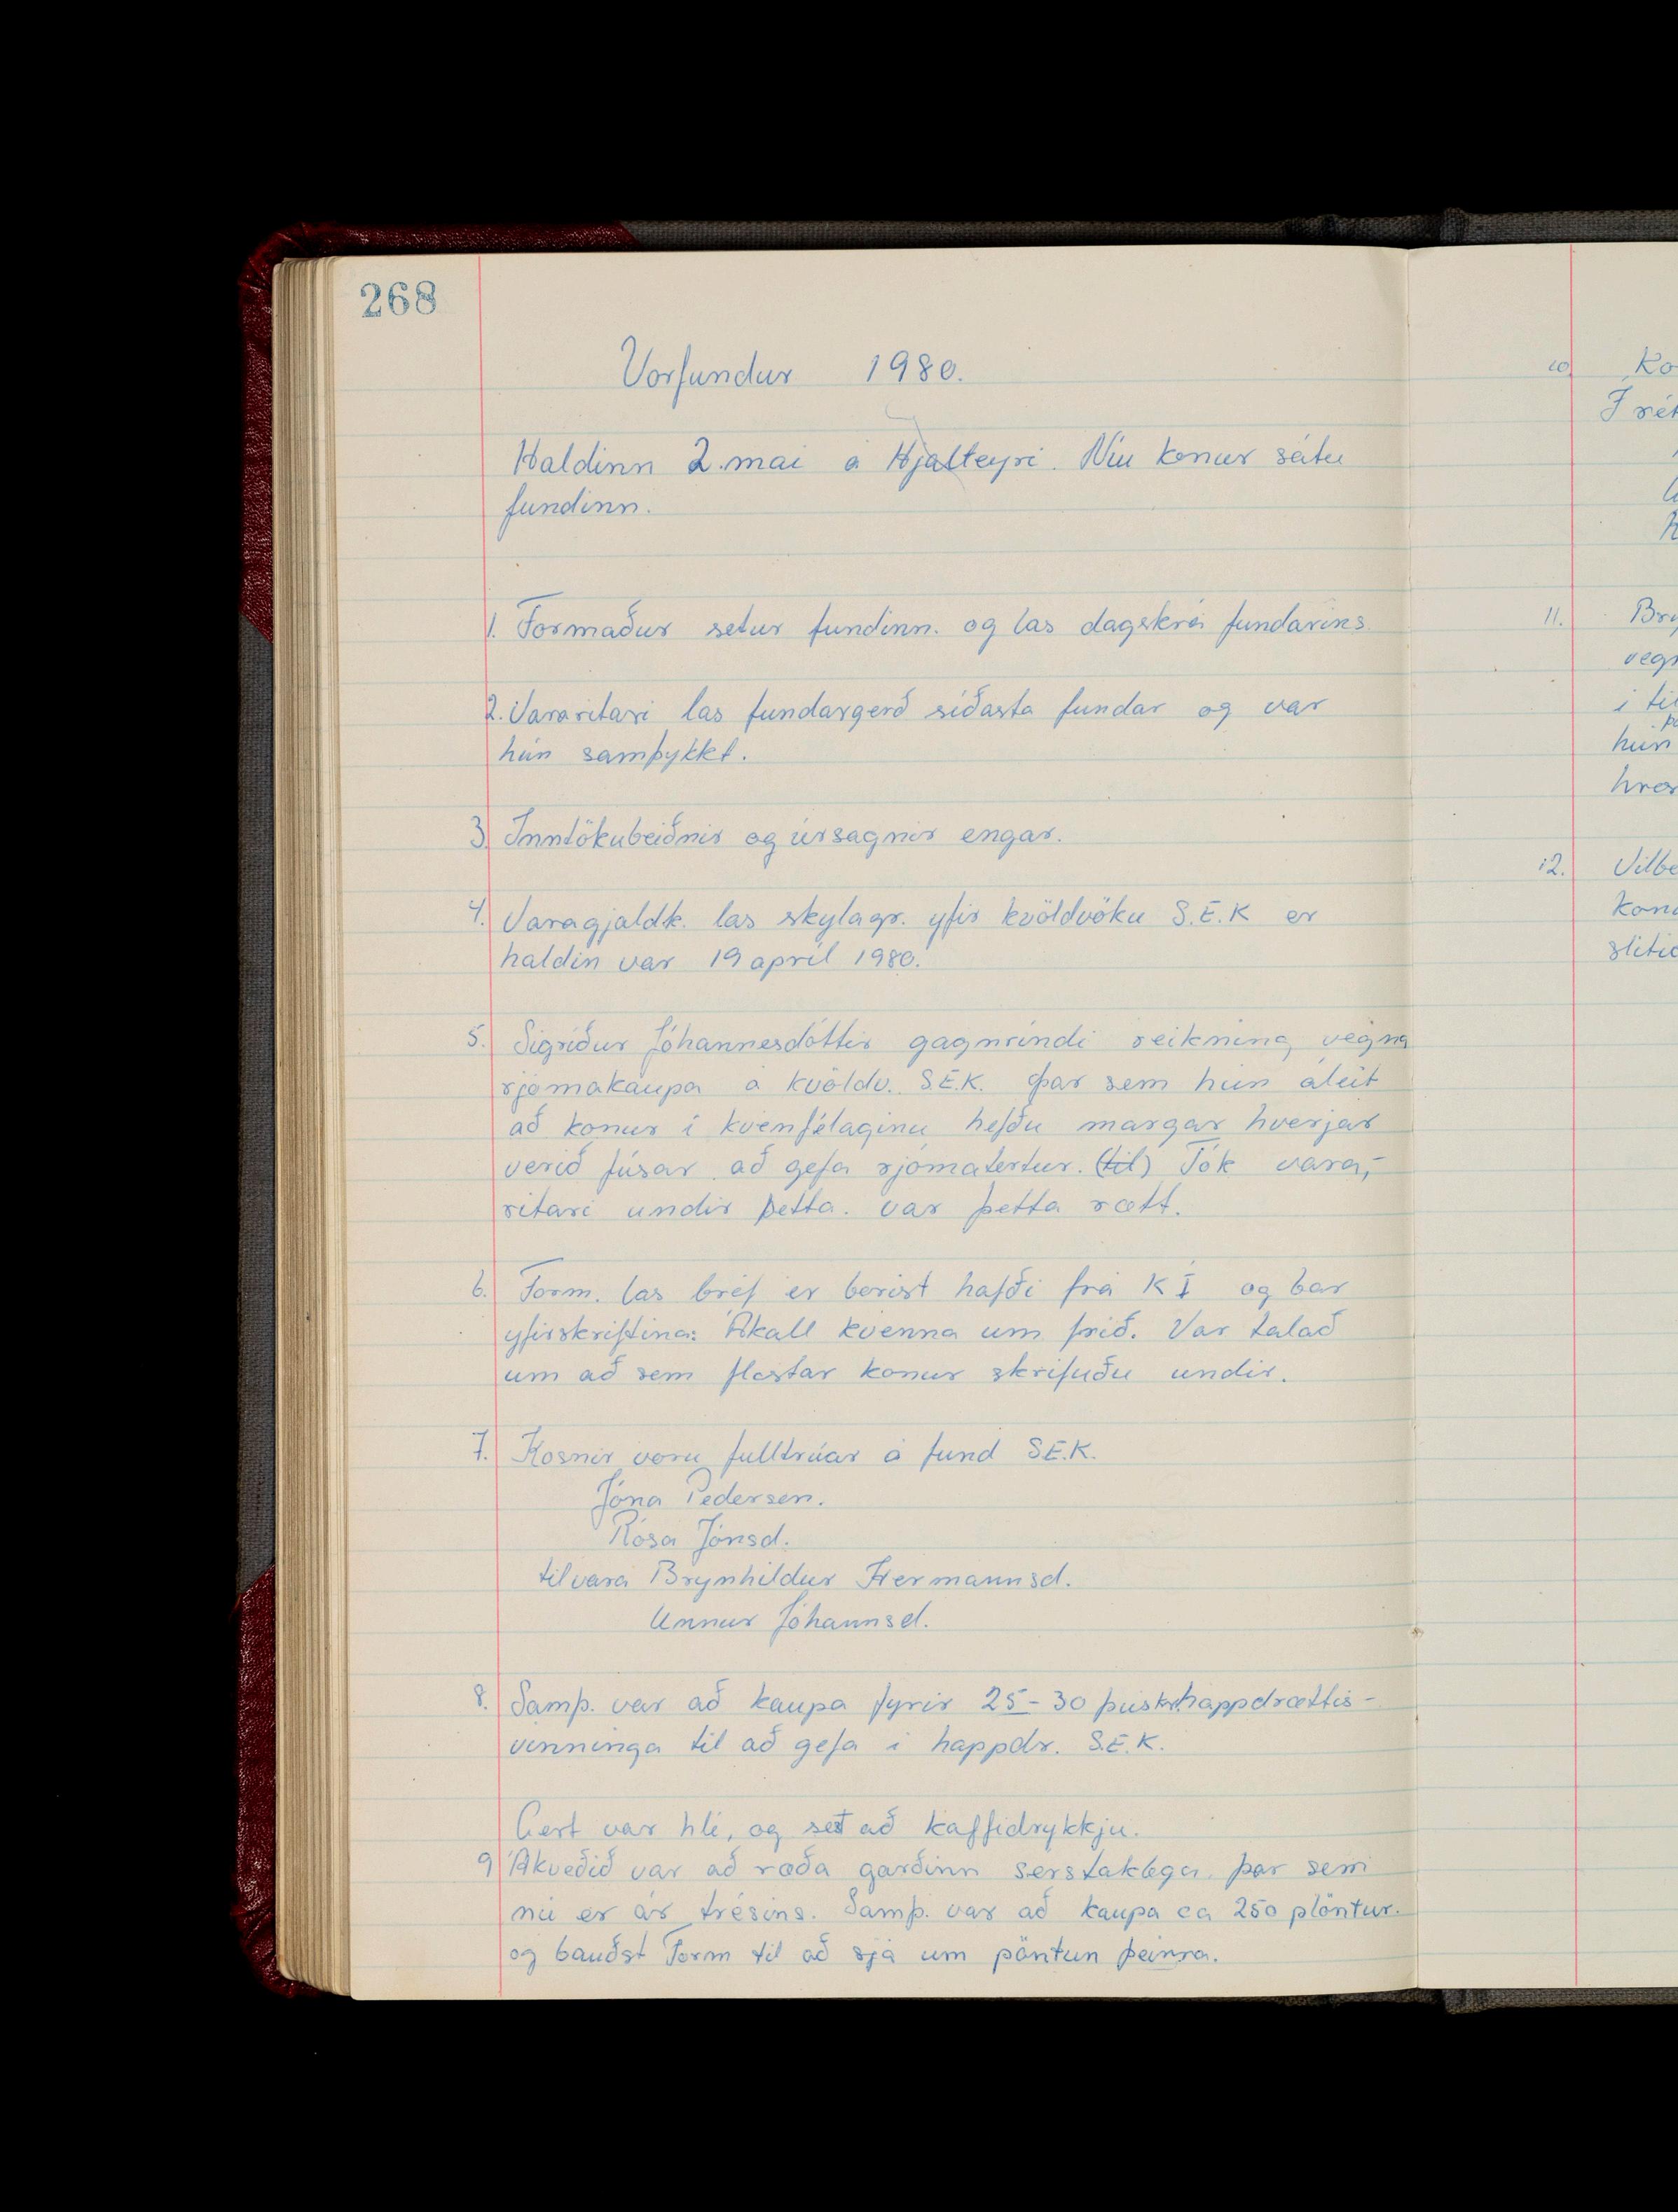 268
Vorfundur 1980.
Haldinn 2. mai á Hjalteyri. Níu konur sátu
fundinn.
1. Formaður setur fundinn. og las dagskrá fundarins.
2. Vararitari las fundargerð síðasta fundar og var
hún samþykkt.
3. Inntökubeiðnir og úrsagnir engar.
4. Varagjaldk. las skylagr. yfir kvöldvöku S.E.K er
haldin var 19 apríl 1980.
5. Sigríður Jóhannesdóttir gagnríndi reikning vegna
rjómakaupa á kvöldv. S.E.K. þar sem hún áleit
að konur í kvenfélaginu hefðu margar hverjar
verið fúsar að gefa rjómatertur. (til) Tók vara,-
ritari undir þetta. var þetta rætt.
6. Form. las bréf er borist hafði frá K Í og bar
yfirskriftina: Ákall kvenna um frið. Var talað
um að sem flestar konur skrifuðu undir.
7. Kosnir voru fulltrúar á fund S.E.K.
Jóna Pedersen.
Rósa Jónsd.
til vara Brynhildur Hermannsd.
Unnur Jóhannsd.
8. Samþ. var að kaupa fyrir 25-30 þús kr. happdrættis-
vinninga til að gefa í happdr. S.E.K.
Gert var hlé, og sest að kaffidrykkju.
9 Ákveðið var að ræða garðinn serstaklega, þar sem
nú er ár trésins. Samþ. var að kaupa ca 250 plöntur.
og bauðst Form til að sjá um pöntun þeirra.
10
Ko
11.
hún
12.